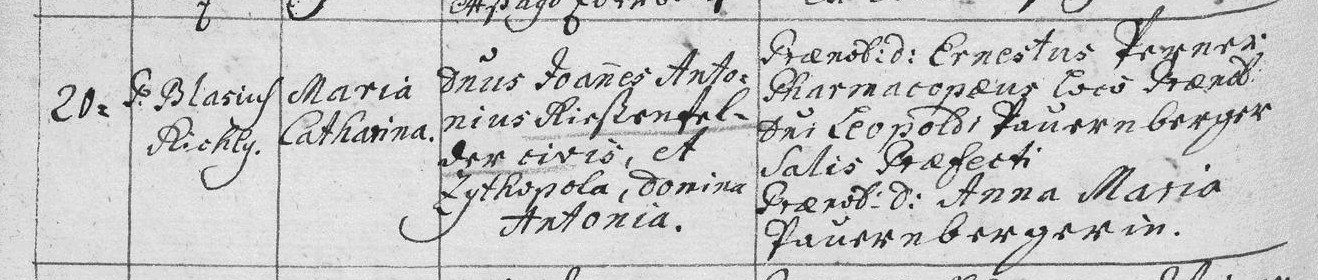 20= P: Blasius
Richly.
Maria
Catharina.
Dnus Joan̄es Anto=
nius Rießenfel-
der civis, et
Zythopola, Domina
Antonia.
Prænob: d: Ernestus Perner,
Pharmacopæus loco Prænob:
Dni Leopoldi Pauernberger
Salis Præfecti
Prænob: d: Anna Maria
Pauernbergerin.